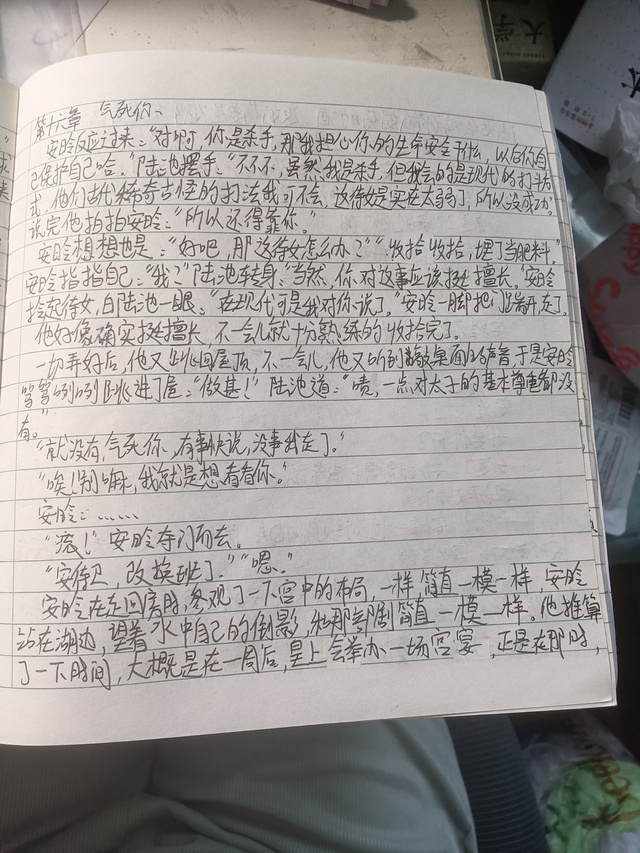 大学
第十六章 气死你、
安昤反应过来：“对啊，你是杀手，那我担心你的生命安全干什么，以后你自
己保护自己哈。”陆池摆手：“不不不，虽然我是杀手，但我会的是现代的打斗方
式，他们古代稀奇古怪的打法我可不会，这侍女是实在太弱了，所以没成功。”
说完他拍拍安昤：“所以还得靠你。”
安昤想想也是：“好吧，那这侍女怎么办？”“收拾收拾，埋了当肥料。”
安昤指指自己：“我？”陆池转身：“当然，你对这事应该挺擅长。”安昤
拎起侍女，白陆池一眼：“在现代可是我对你说了。”安昤一脚把门踹开走了。
他好像确实挺擅长，不一会儿就十分熟练的收拾完了。
一切弄好后，他又跳回屋顶，不一会儿，他又听到敲桌面的声音于是安昤
骂骂咧咧跳进了屋：“做甚！”陆池道：“啧，一点对太子的基本尊重都没
有。”
“就没有，气死你，有事快说，没事我走了。”
“唉！别嘛，我就是想看看你。”
安昤：……
“滚！”安昤夺门而去。
“安侍卫，改换班了。”“嗯。”
安昤在走回房时，参观了一下宫中的布局，一样，简直一模一样，安昤
站在湖边，望着水中自己的倒影，和那部剧简直一模一样。他推算
了一下时间，大概是在一周后，皇上会举办一场宫宴，正是在那时，